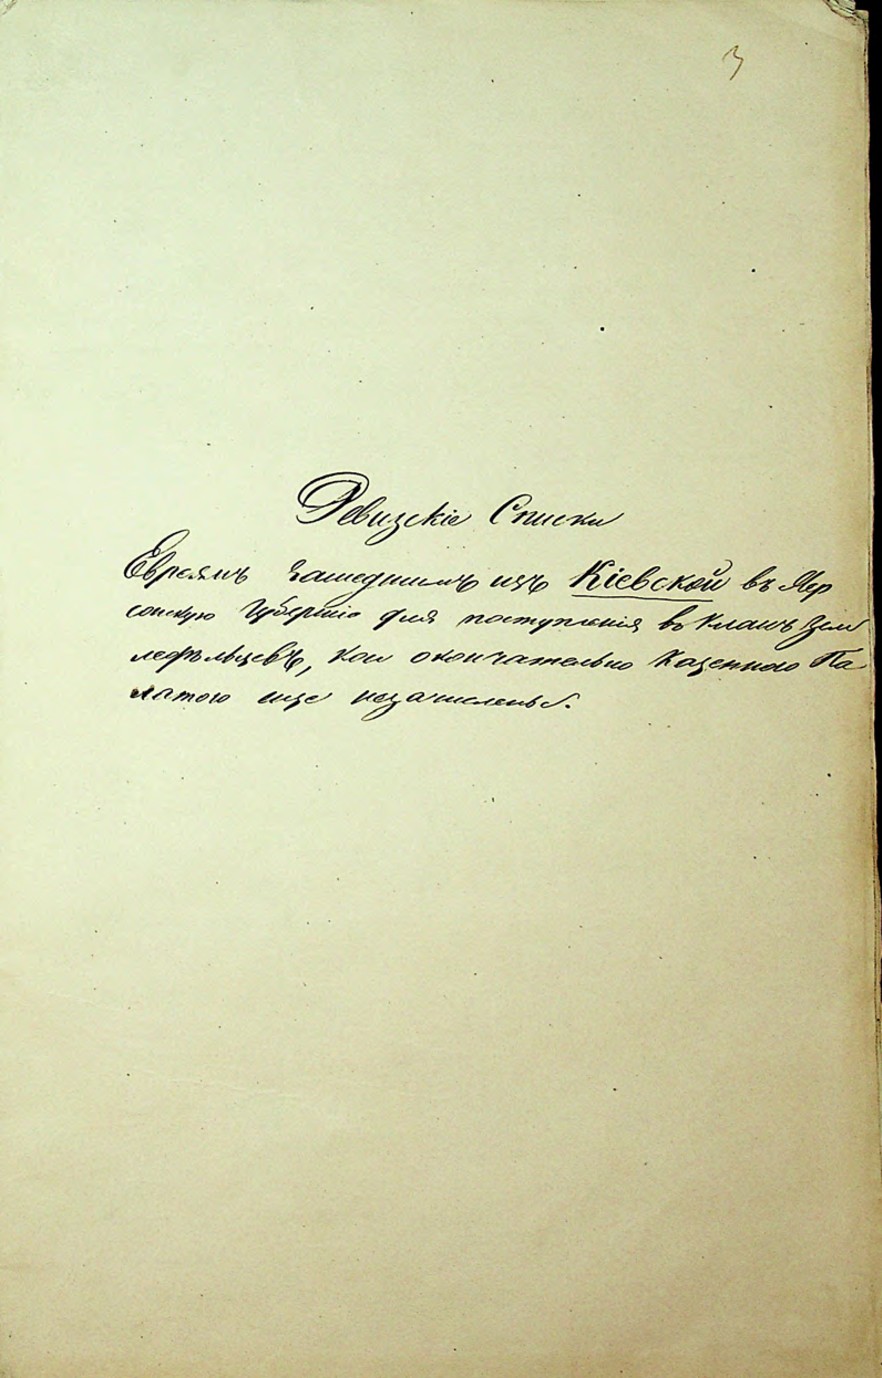 3
Ревизскіе Списки
Евреямъ зашедшимъ изъ Кіевской въ Хер
сонскую Губернію для поступленія въ классъ Зем
ледѣльцевъ, кои окончательно Казенною Па
латою еще незачислены.